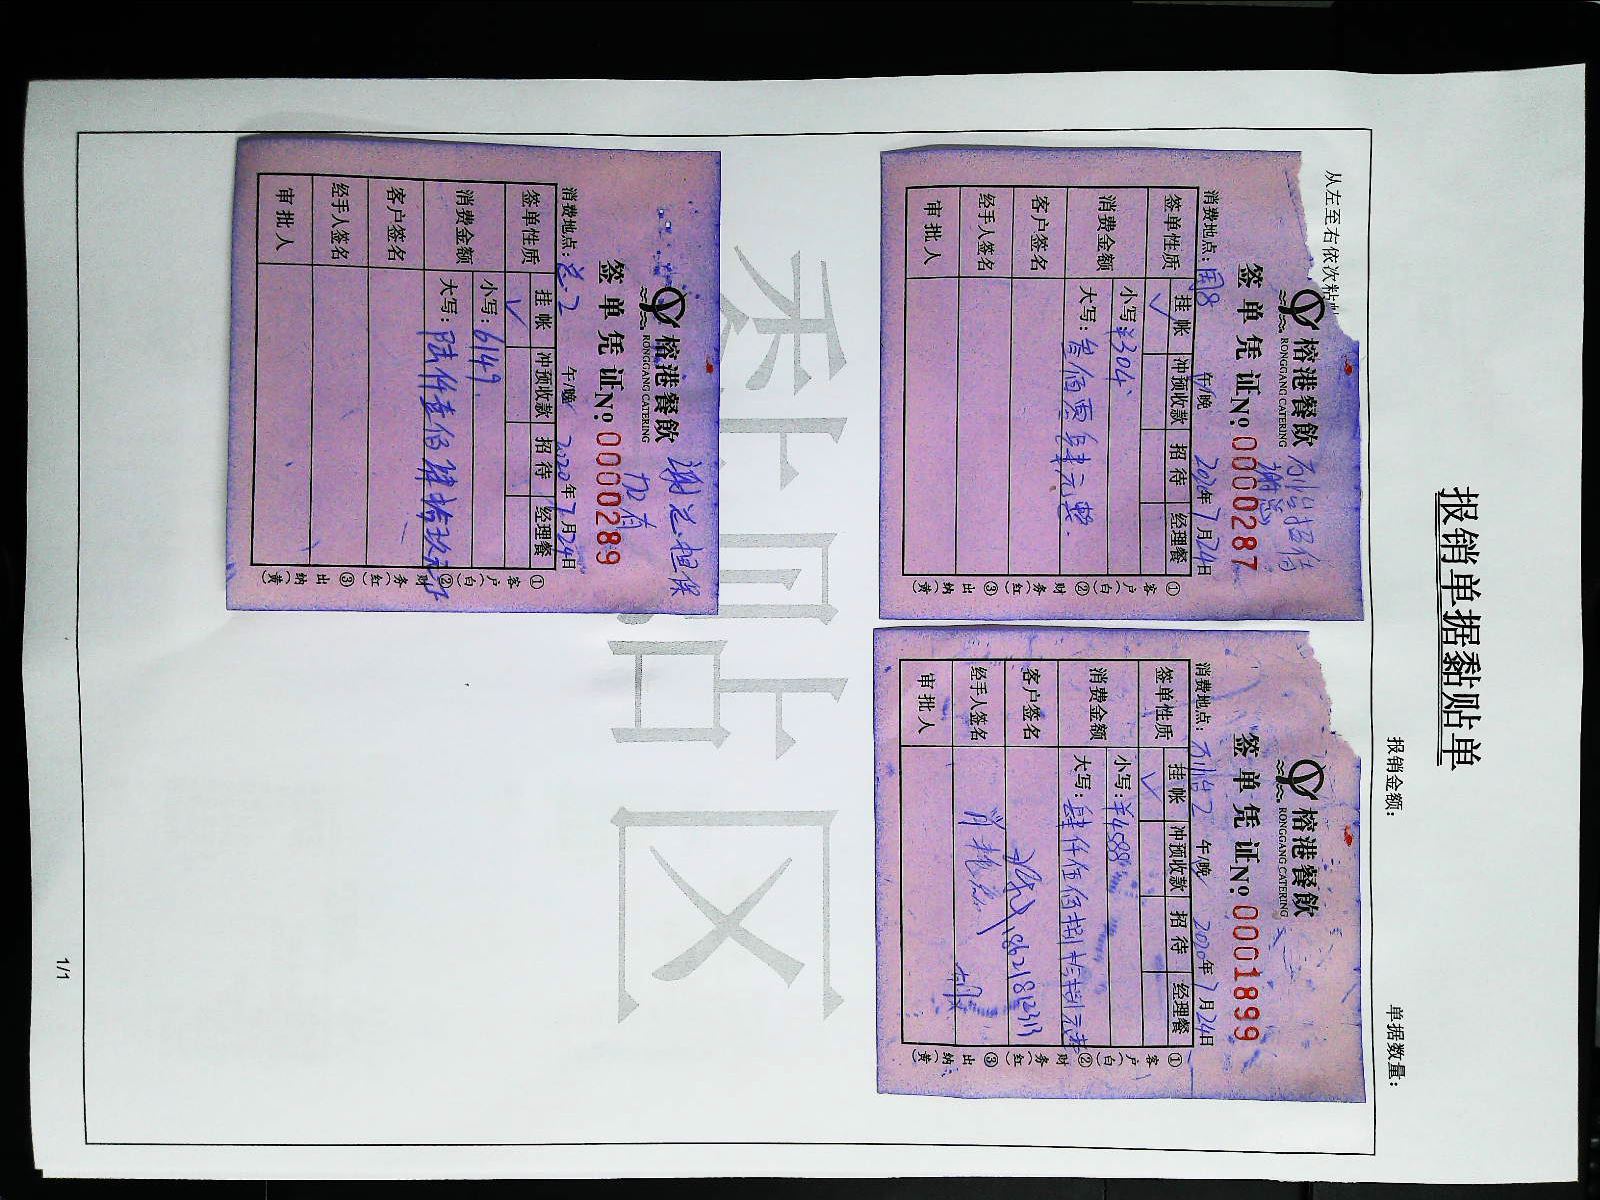 报销单据黏贴单
报销金额：
单据数量：
从左至右依次粘
粘贴区
榕港餐飲
RONGGANG CATERING
签单凭证 No. 0000287
消费地点：周8 午/晚 2020年7月24日
签单性质 挂帐 冲预收款 招待 经理餐
✓
消费金额 小写：¥304
大写：叁佰零肆元整
客户签名
经手人签名
审批人
①客户(白) ②财务(红) ③出纳(黄)
榕港餐飲
RONGGANG CATERING
签单凭证 No. 0001899
消费地点： 午/晚 2020年7月24日
签单性质 挂帐 冲预收款 招待 经理餐
✓
消费金额 小写：¥4588
大写：肆仟伍佰捌拾捌元整
客户签名
经手人签名
审批人
①客户(白) ②财务(红) ③出纳(黄)
榕港餐飲 谢总担保
RONGGANG CATERING
签单凭证 No. 0000289
消费地点：总2 午/晚 2020年7月24日
签单性质 挂帐 冲预收款 招待 经理餐
✓
消费金额 小写：6149
大写：陆仟壹佰肆拾玖元
客户签名
经手人签名
审批人
①客户(白) ②财务(红) ③出纳(黄)
1/1